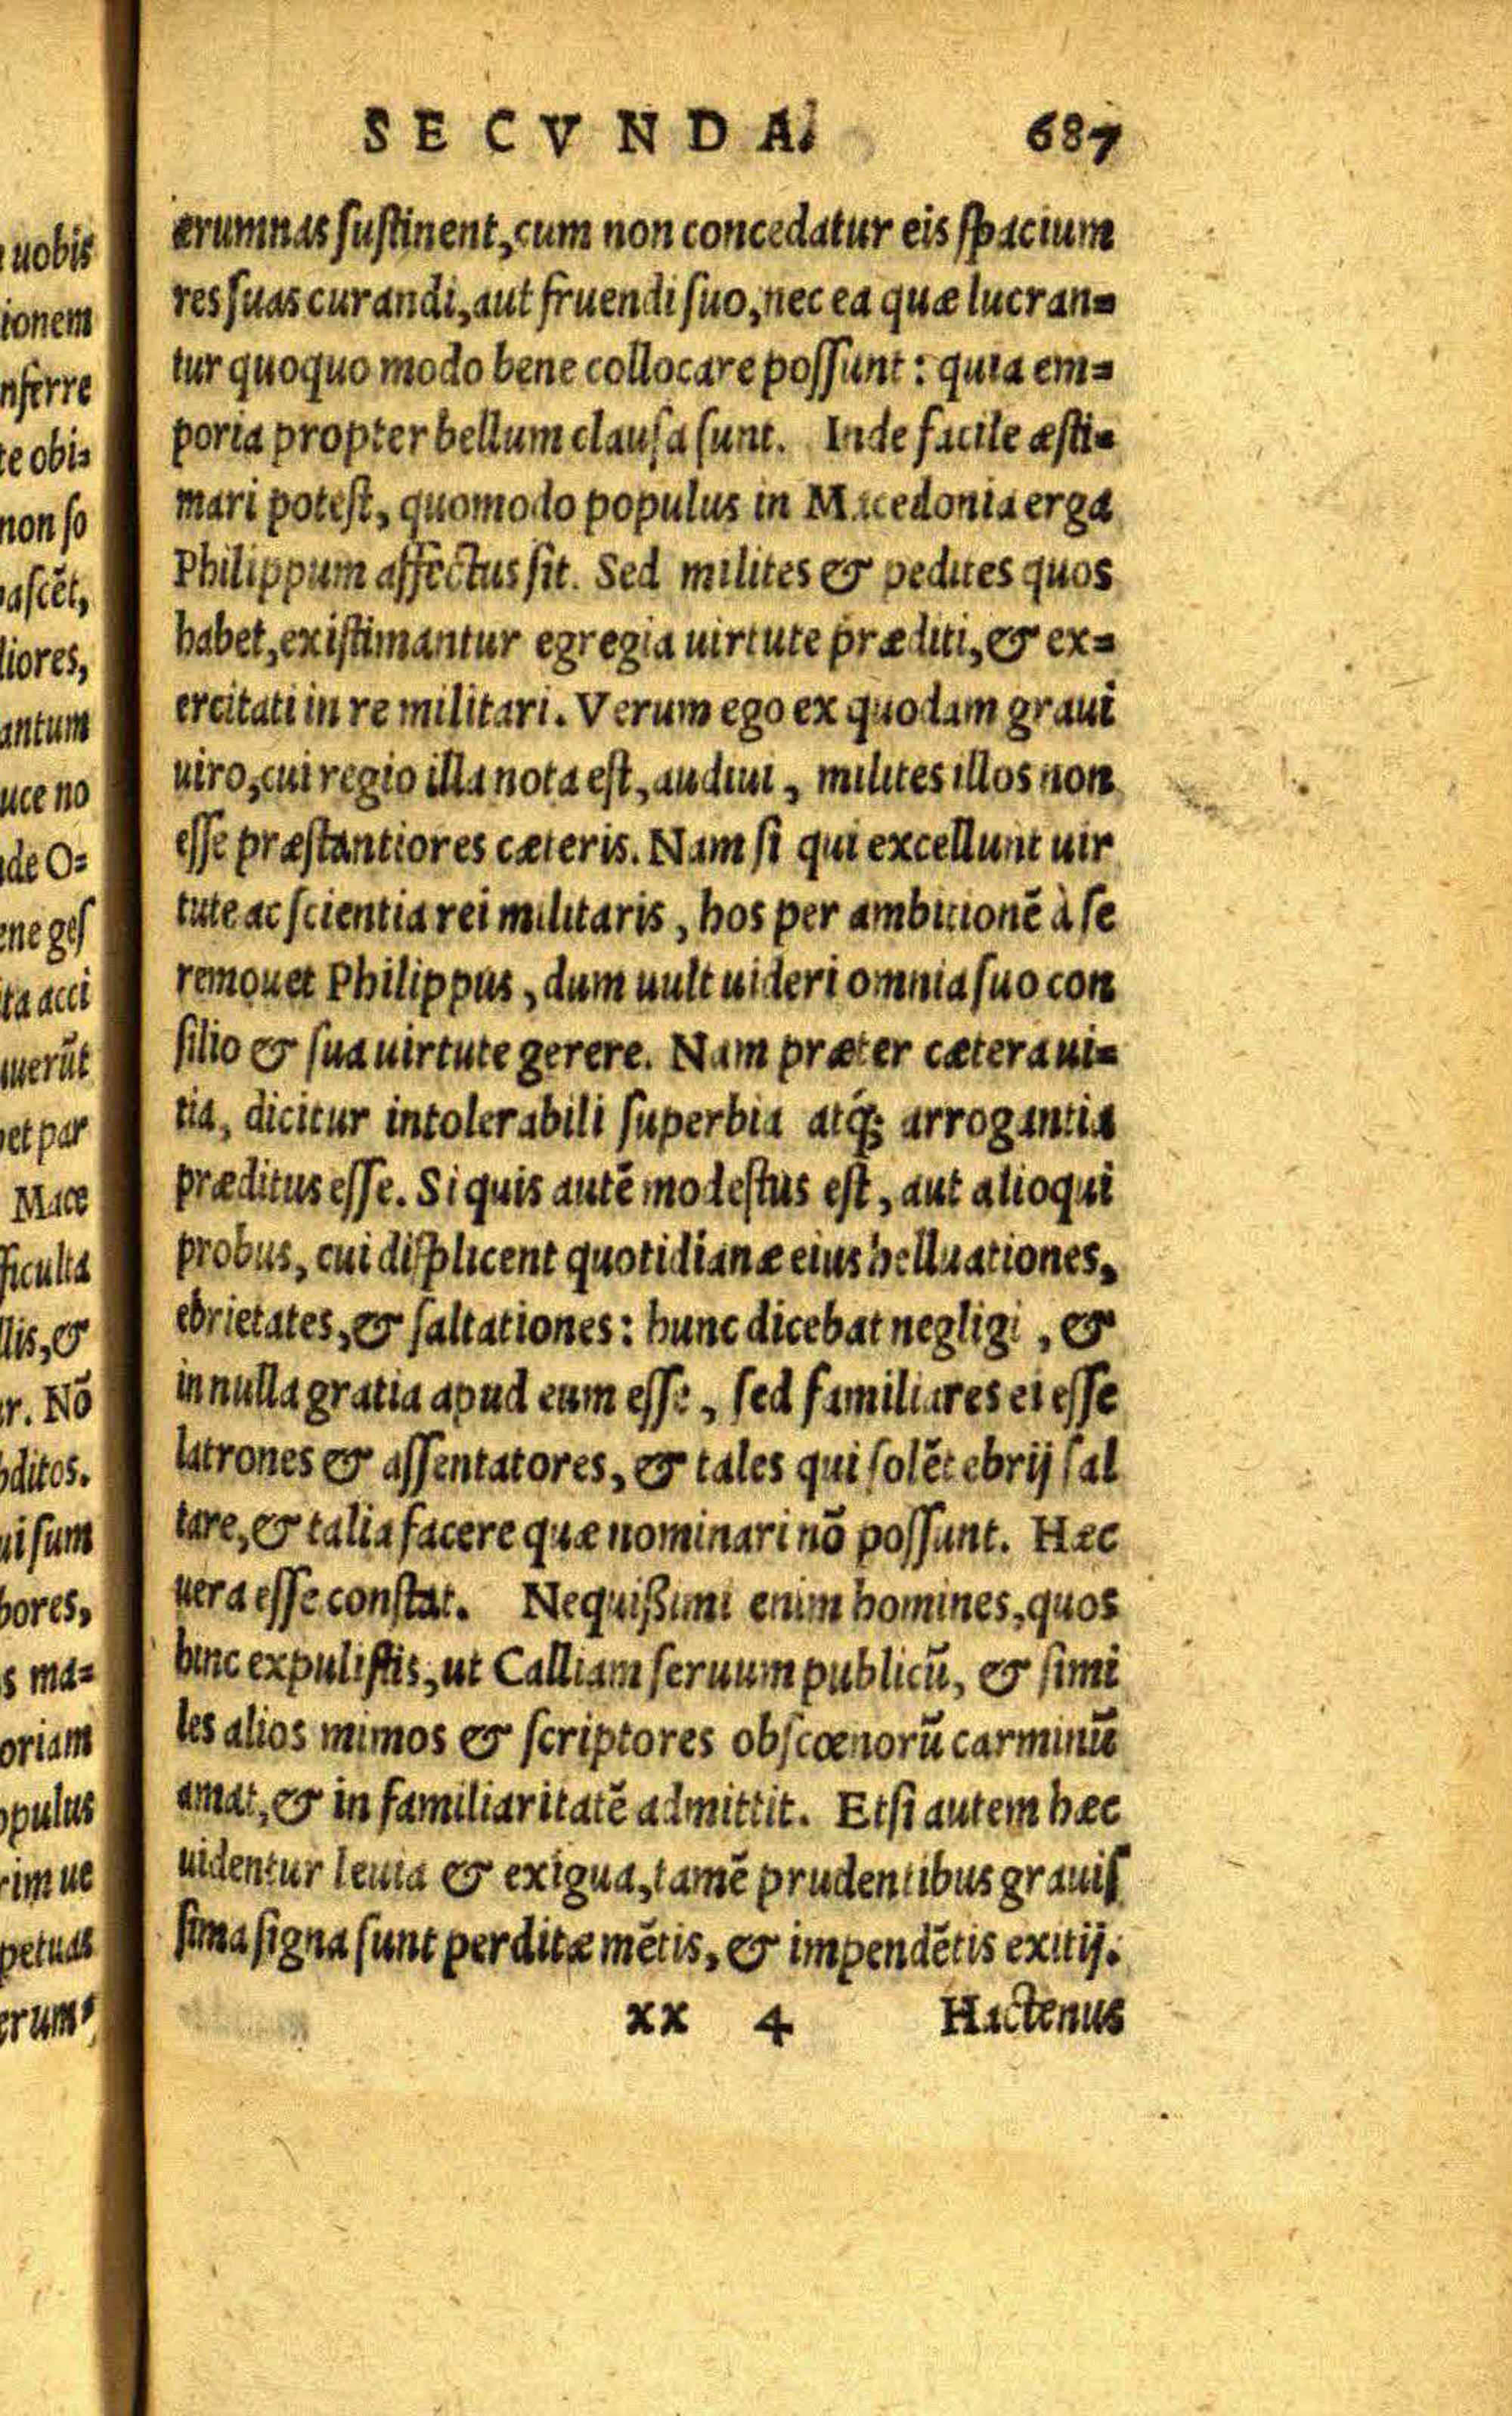 SECVNDA. 687
ærumnas sustinent, cum non concedatur eis spacium
res suas curandi, aut fruendi suo, nec ea quæ lucran-
tur quoquo modo bene collocare possunt: quia em-
poria propter bellum clausa sunt. Inde facile æsti-
mari potest, quomodo populus in Macedonia erga
Philippum affectus sit. Sed milites & pedites quos
habet, existimantur egregia uirtute præditi, & ex-
ercitati in re militari. Verum ego ex quodam graui
uiro, cui regio illa nota est, audiui, milites illos non
esse præstantiores cæteris. Nam si qui excellunt uir
tute ac scientia rei militaris, hos per ambitionē à se
remouet Philippus, dum uult uideri omnia suo con
silio & sua uirtute gerere. Nam præter cætera ui-
tia, dicitur intolerabili superbia atq́; arrogantia
præditus esse. Si quis autē modestus est, aut alioqui
probus, cui displicent quotidianæ eius helluationes,
ebrietates, & saltationes: hunc dicebat negligi, &
in nulla gratia apud eum esse, sed familiares ei esse
latrones & assentatores, & tales qui solēt ebrij sal
tare, & talia facere quæ nominari nō possunt. Hæc
uera esse constat. Nequißimi enim homines, quos
hinc expulistis, ut Calliam seruum publicū, & simi
les alios mimos & scriptores obscœnorū carminū
amat, & in familiaritatē admittit. Etsi autem hæc
uidentur leuia & exigua, tamē prudentibus grauis
sima signa sunt perditæ mētis, & impendētis exitij.
xx 4 Hactenus